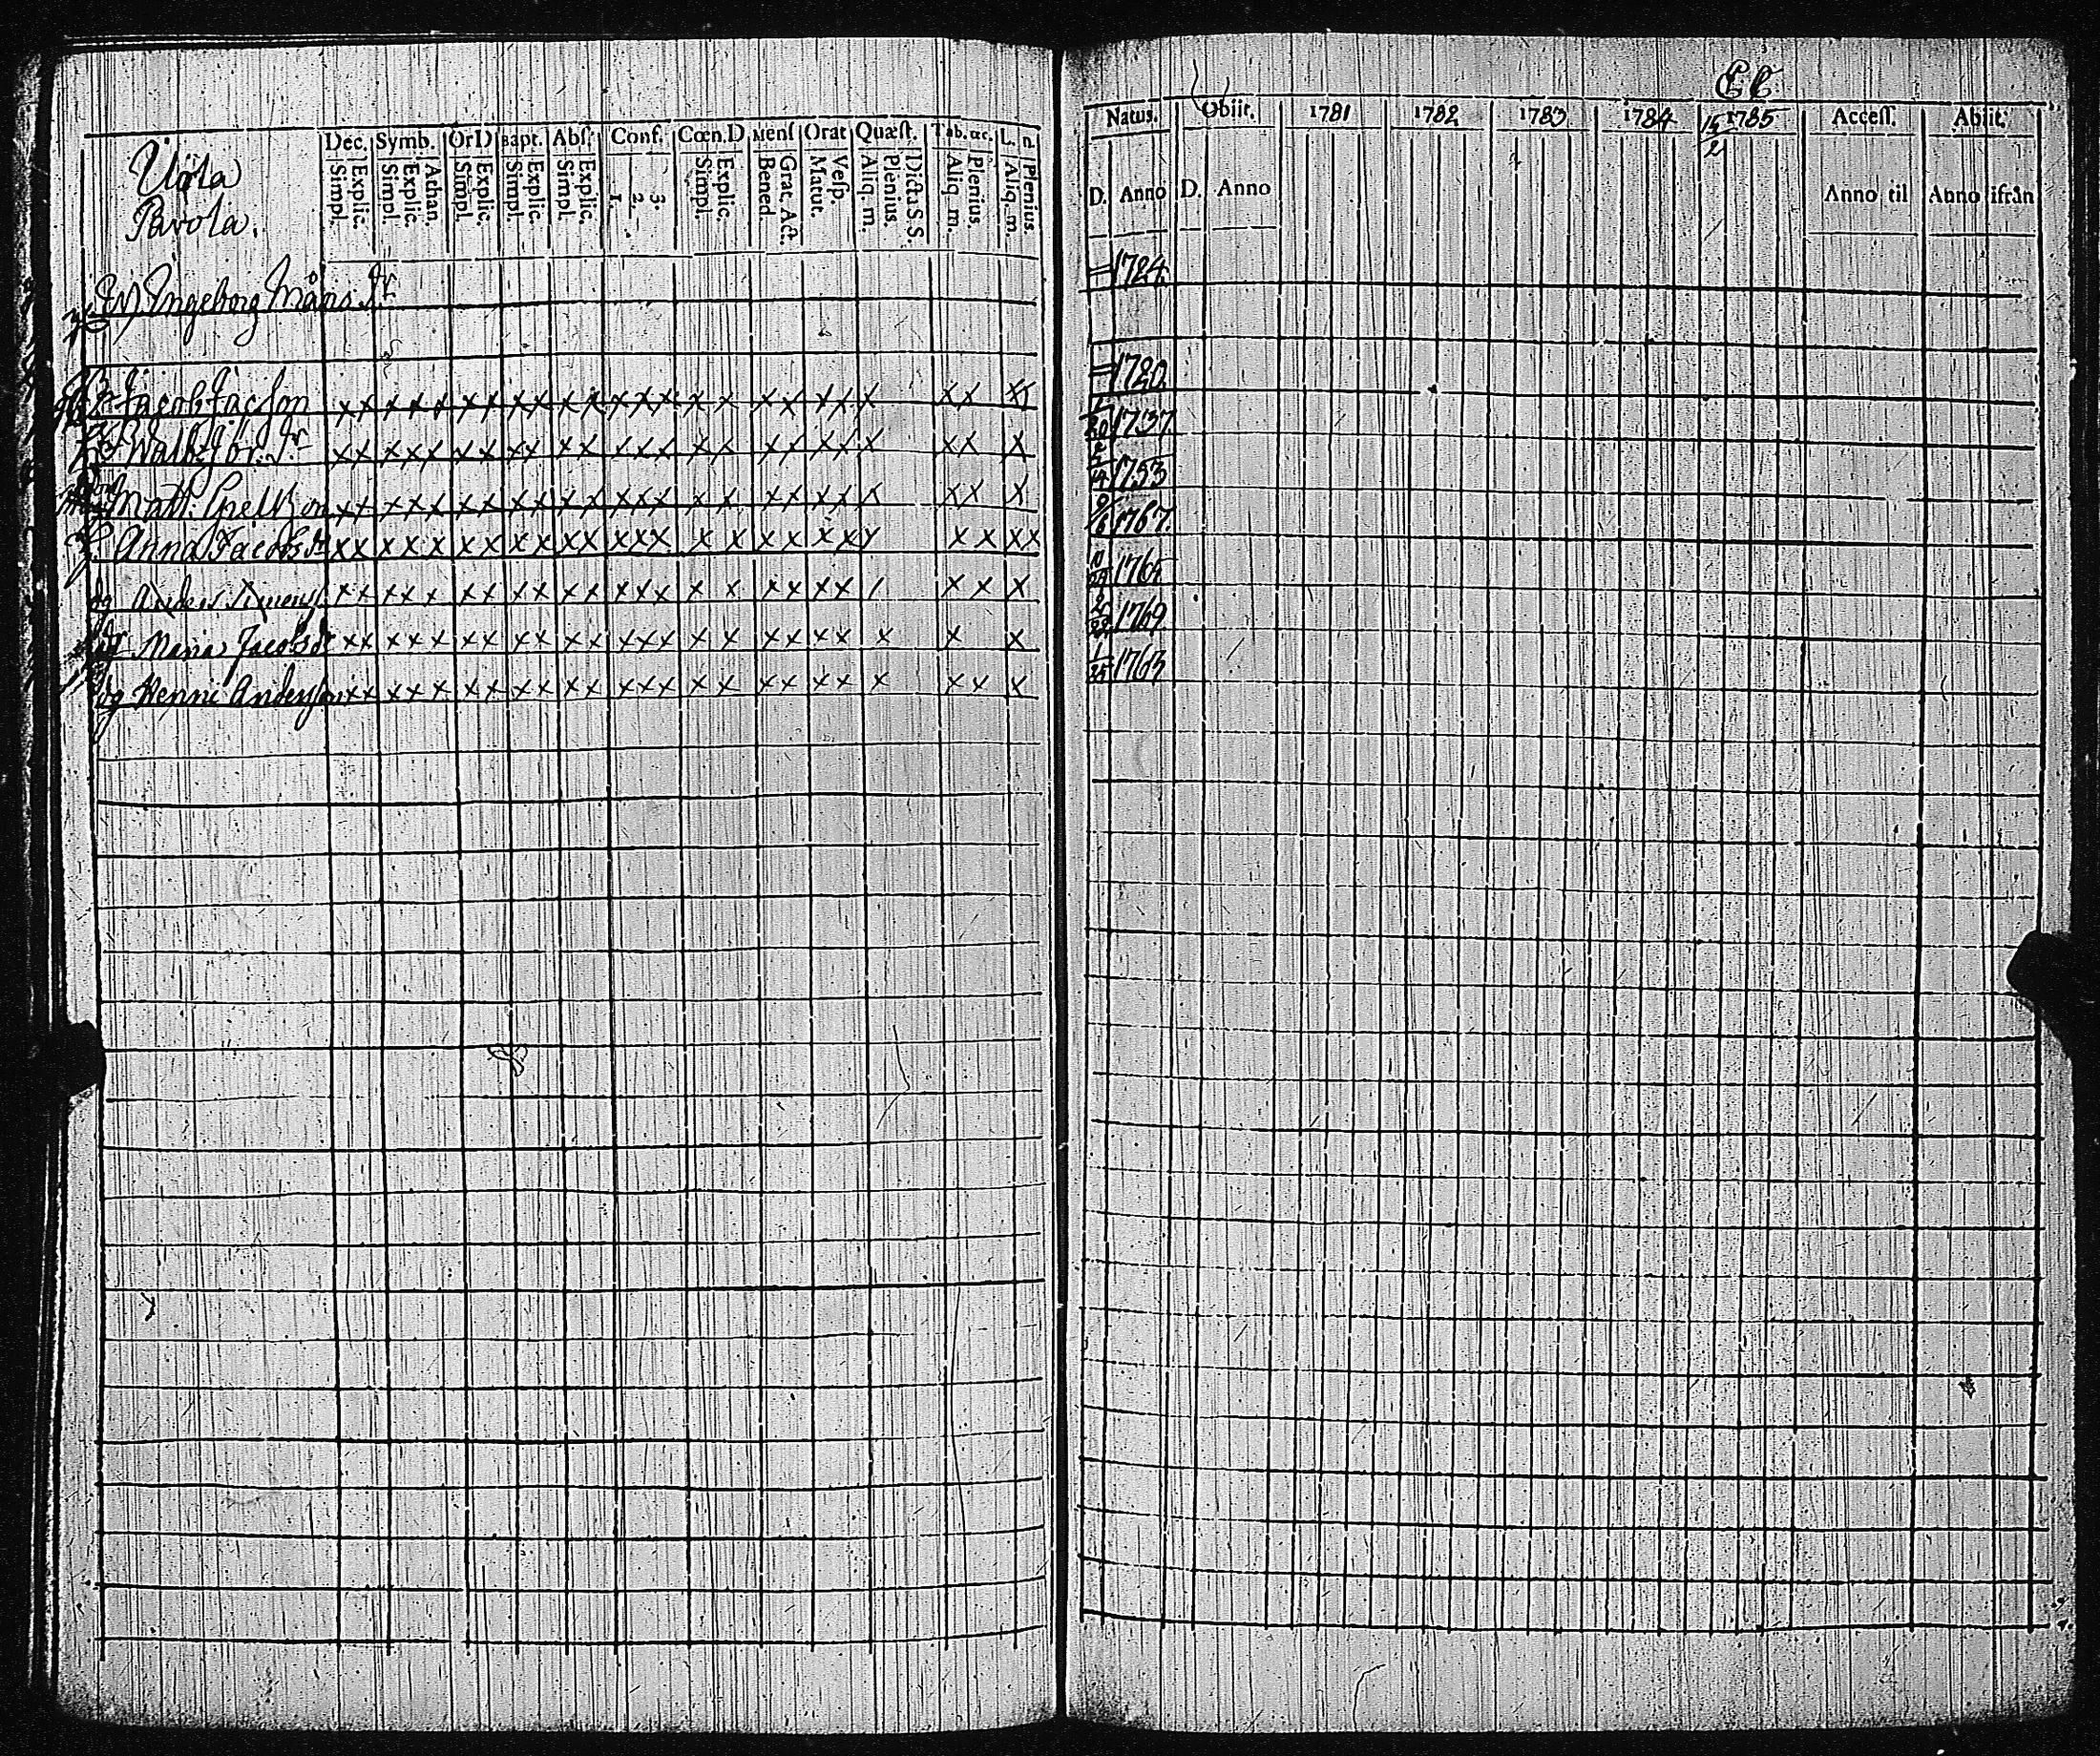 Uola
Pavola.
Dec. Symb. Or D Bapt. Abſ. Conf. Cœn. D Menſ Orat Quæſt. Tab. œc. L. d
Simpl. Explic. Simpl. Explic. Athan. Simpl. Explic. Simpl. Explic. Simpl. Explic. 1. 2. 3. Simpl. Explic. Bened. Grat. Act. Matut. Veſp. Aliq. m. Plenius. Dicta S. S. Aliq. m. Plenius. Aliq. m. Plenius.
Ingeborg Måns dr
Jacob Jacſson x x x x x x x x x x x x x x x x x x x x x x x x x
Walb. Jör. dr x x x x x x x x x x x x x x x x x x x x x x x x
Matt. x x x x x x x x x x x x x x x x x x x x x x x x
Anna Jacobs dr x x x x x x x x x x x x x x x x x x x x x x x x x
Anders x x x x x x x x x x x x x x x x x x x x x x x
dr Maria Jacobs dr x x x x x x x x x x x x x x x x x x x x x x x
Henric Andersson x x x x x x x x x x x x x x x x x x x x x x x x
Natus. Obiit. 1781 1782 1783 1784 1785 Acceſſ. Abiit.
D. Anno D. Anno Anno til Anno ifrån
1724
1720
1737
1753
1767.
1765
1769
1763